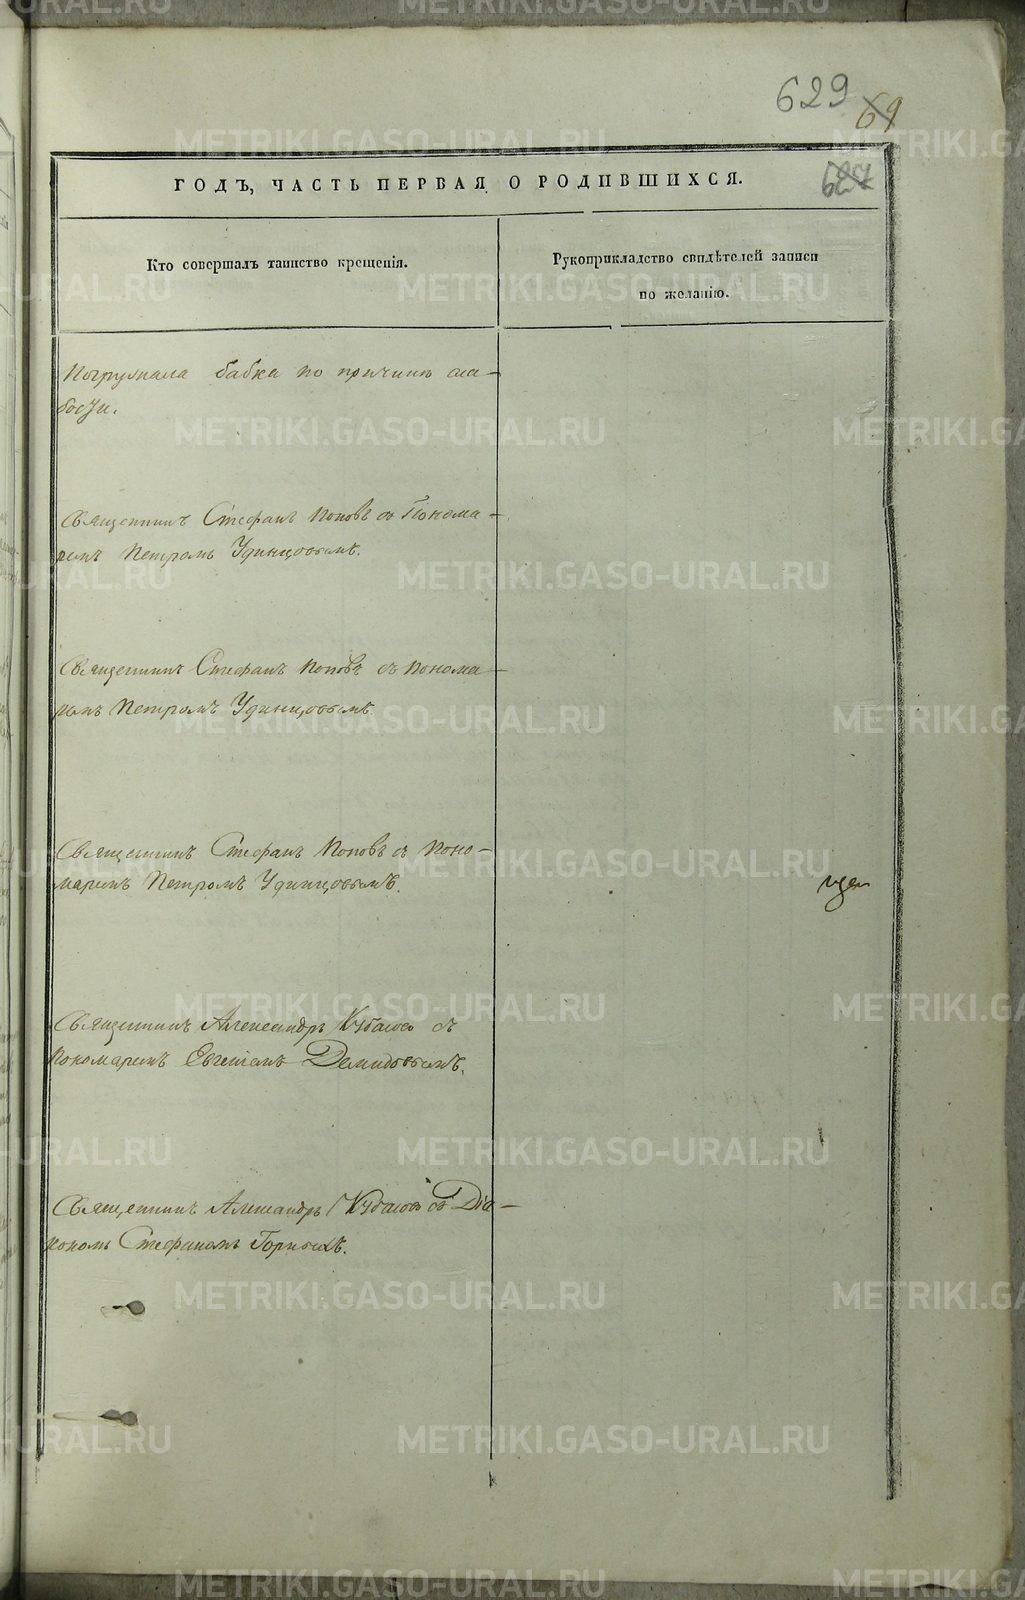 629
69
627
ГОДЪ, ЧАСТЬ ПЕРВАЯ О РОДИВШИХСЯ.
Кто совершалъ таинство крещенія.
Рукоприкладство свидѣтелей записи
по желанію.
Погружала бабка по причинѣ сла-
бости.
Священникъ Стефанъ Поповъ съ Понома-
ремъ Петромъ Удинцовымъ.
Священникъ Стефанъ Поповъ съ понома-
ремъ Петромъ Удинцовымъ.
Священникъ Стефанъ Поповъ съ Поно-
маремъ Петромъ Удинцовымъ.
Священникъ Александръ съ
пономаремъ Евгеніемъ Демидовымъ.
Священникъ Александръ съ Діа-
кономъ Стефаномъ
METRIKI.GASO-URAL.RU